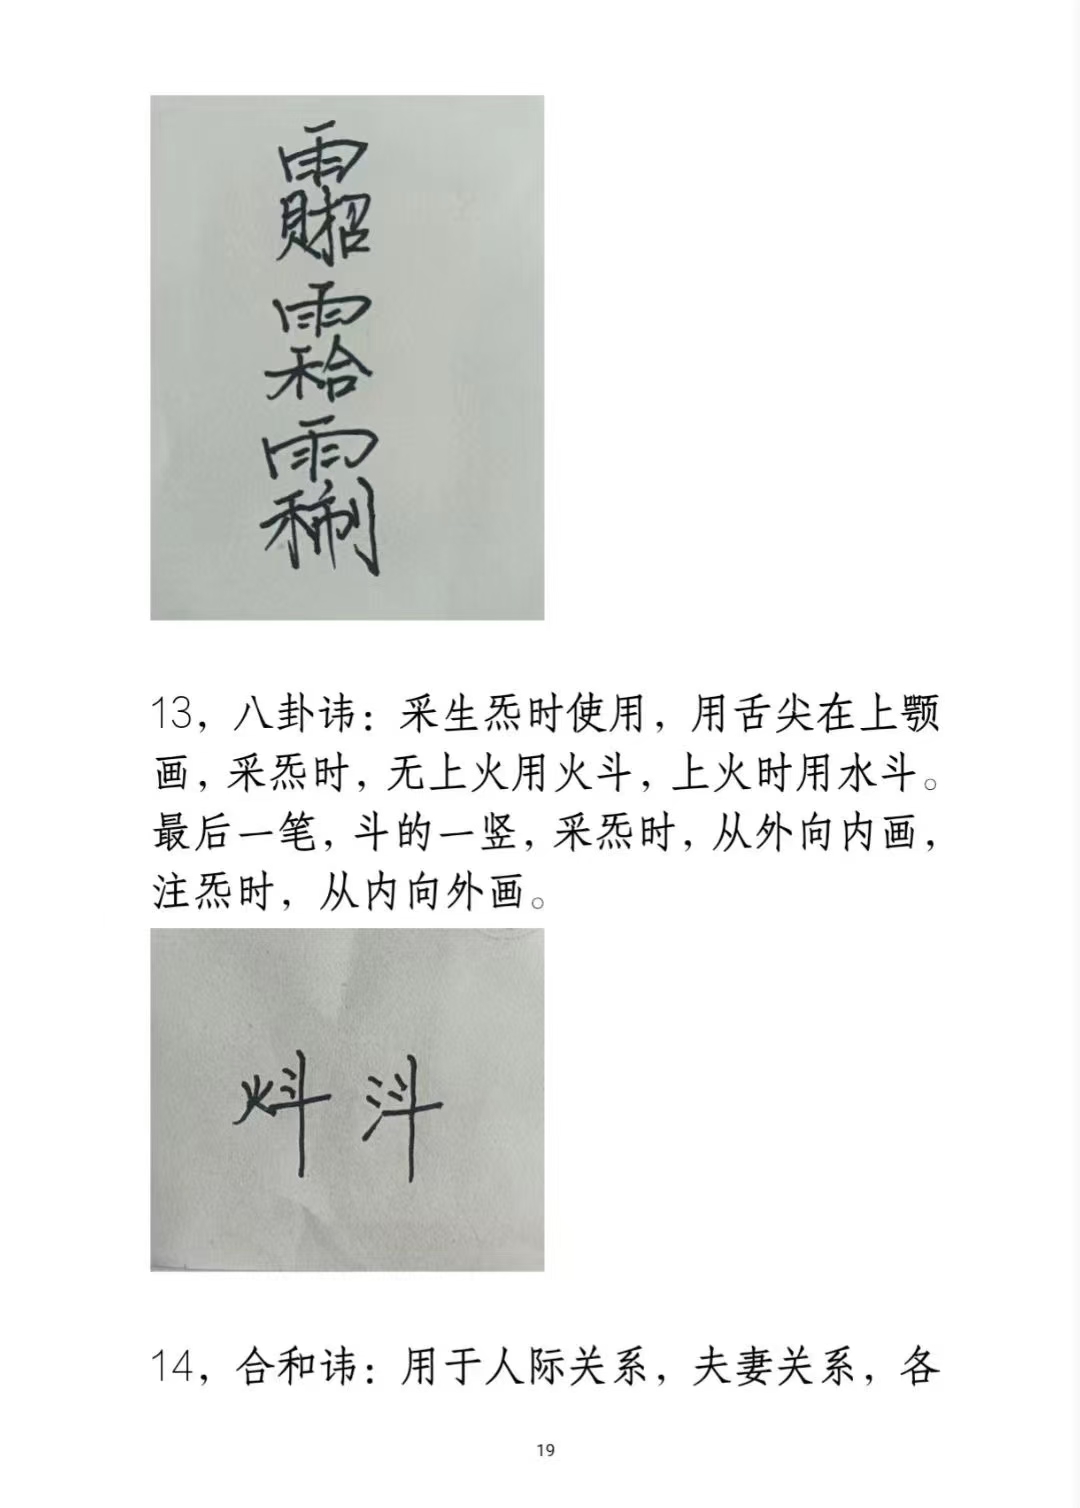 13，八卦讳：采生炁时使用，用舌尖在上颚
画，采炁时，无上火用火斗，上火时用水斗。
最后一笔，斗的一竖，采炁时，从外向内画，
注炁时，从内向外画。
14，合和讳：用于人际关系，夫妻关系，各
19